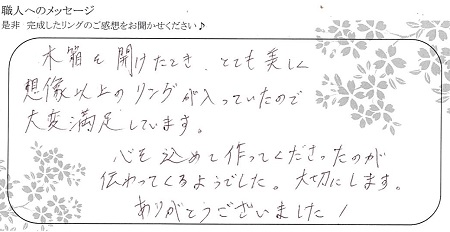 職人へのメッセージ
是非 完成したリングのご感想をお聞かせください♪
木箱を開けたとき、とても美しく
想像以上のリングが入っていたので
大変満足しています。
心を込めて作ってくださったのが
伝わってくるようでした。大切にします。
ありがとうございました!